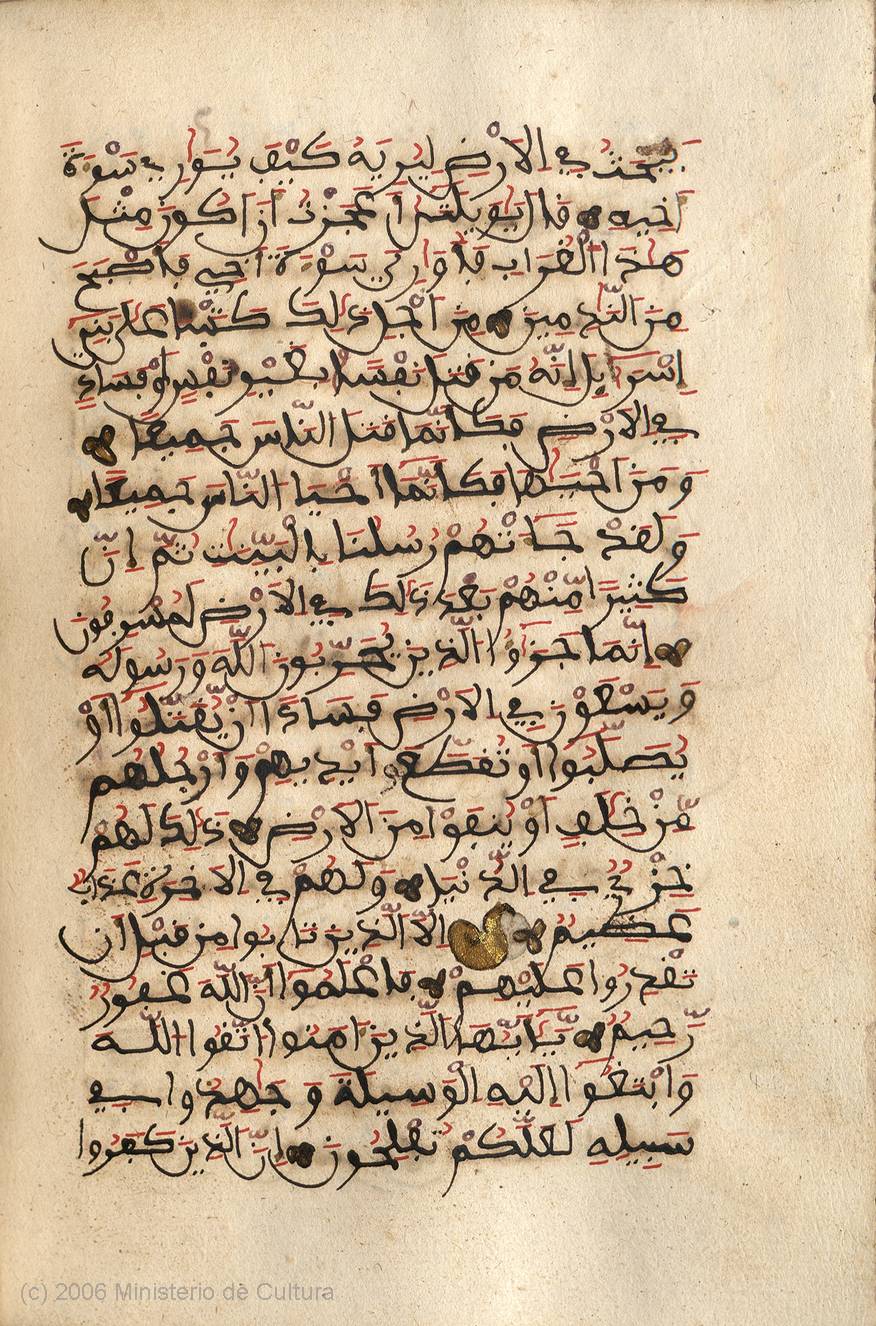 يبحث في الارض ليريه كيف يواري سوءة
اخيه قال يويلتى اعجزت ان اكون مثل
هذا الغراب فاواري سوءة اخي فاصبح
من الندمين من اجل ذلك كتبنا على بني
اسراءيل انه من قتل نفسا بغير نفس او فساد
في الارض فكانما قتل الناس جميعا
ومن احياها فكانما احيا الناس جميعا
ولقد جاءتهم رسلنا بالبينت ثم ان
كثيرا منهم بعد ذلك في الارض لمسرفون
انما جزؤا الذين يحربون الله ورسوله
ويسعون في الارض فسادا ان يقتلوا او
يصلبوا او تقطع ايديهم وارجلهم
من خلف او ينفوا من الارض ذلك لهم
خزي في الدنيا ولهم في الاخرة عذاب
عظيم الا الذين تابوا من قبل ان
تقدروا عليهم فاعلموا ان الله غفور
رحيم يايها الذين امنوا اتقوا الله
وابتغوا اليه الوسيلة وجهدوا في
سبيله لعلكم تفلحون ان الذين كفروا
(c) 2006 Ministerio de Cultura